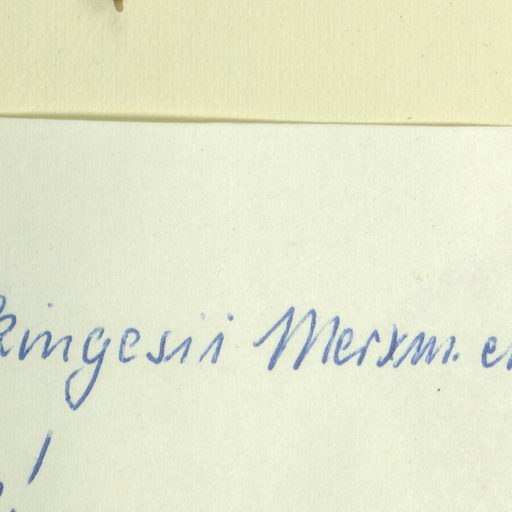 kingesii Merxm. e
!